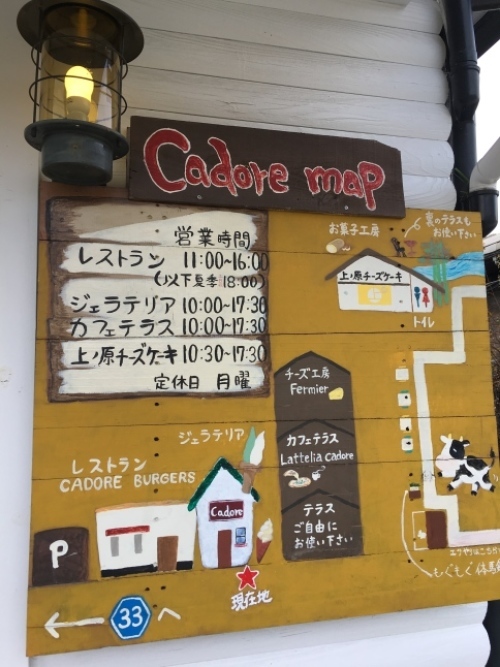 Cadore map
営業時間
レストラン 11:00~16:00
(以下夏季18:00)
ジェラテリア 10:00~17:30
カフェテラス 10:00~17:30
上ノ原チーズケーキ 10:30~17:30
定休日 月曜
お菓子工房
裏のテラスも
お使い下さい
上ノ原チーズケーキ
トイレ
チーズ工房
Fermier
カフェテラス
Lattelia cadore
テラス
ご自由に
お使い下さい
ジェラテリア
レストラン
CADORE BURGERS
Cadore
P
現在地
33
へ
もぐもぐ体